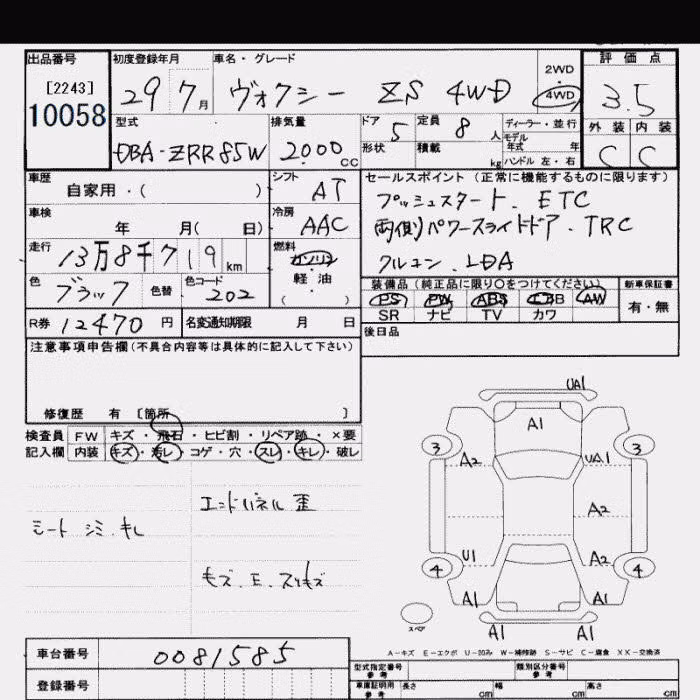 出品番号
[2243]
10058
初度登録年月
29 7月
車名・グレード
ヴォクシー ZS 4WD
2WD
・
4WD
評価点
3.5
型式
DBA-ZRR85W
排気量
2000 CC
ドア
5
形状
定員
8人
積載 kg
ディーラー・並行
モデル
年式 年
ハンドル 左・右
外装 内装
C C
車歴
自家用・( )
シフト
AT
車検
年 月( 日)
冷房
AAC
走行
13万8千719km
燃料
ガソリン
軽油
( )
色
ブラック
色替
色コード
202
R券 12470円
名変通知期限 月 日
セールスポイント(正常に機能するものに限ります)
プッシュスタート. ETC
両側パワースライドドア. TRC
クルコン. LDA
装備品(純正品に限り○をつけてください)
PS PW ABS エアB AW
SR ナビ TV カワ
新車保証書
有・無
後日品
注意事項申告欄(不具合内容等は具体的に記入して下さい)
修復歴 有 [箇所 ]
検査員 FW キズ・飛石・ヒビ割・リペア跡・×要
記入欄 内装 キズ・汚レ・コゲ・穴・スレ・キレ・破レ
エンドパネル 歪
シート シミ.キレ
キズ. E. スリキズ
UA1
A1
3 3
A2 UA1
A2
U1 A2
4 4
A1 A1
A1 A1
スペア
A-キズ E-エクボ U-凹み W-補修跡 S-サビ C-腐食 XX-交換済
車台番号 0081585
登録番号
型式指定番号
参考
類別区分番号
参考
車庫証明用
参考
長さ cm 幅 cm 高さ cm